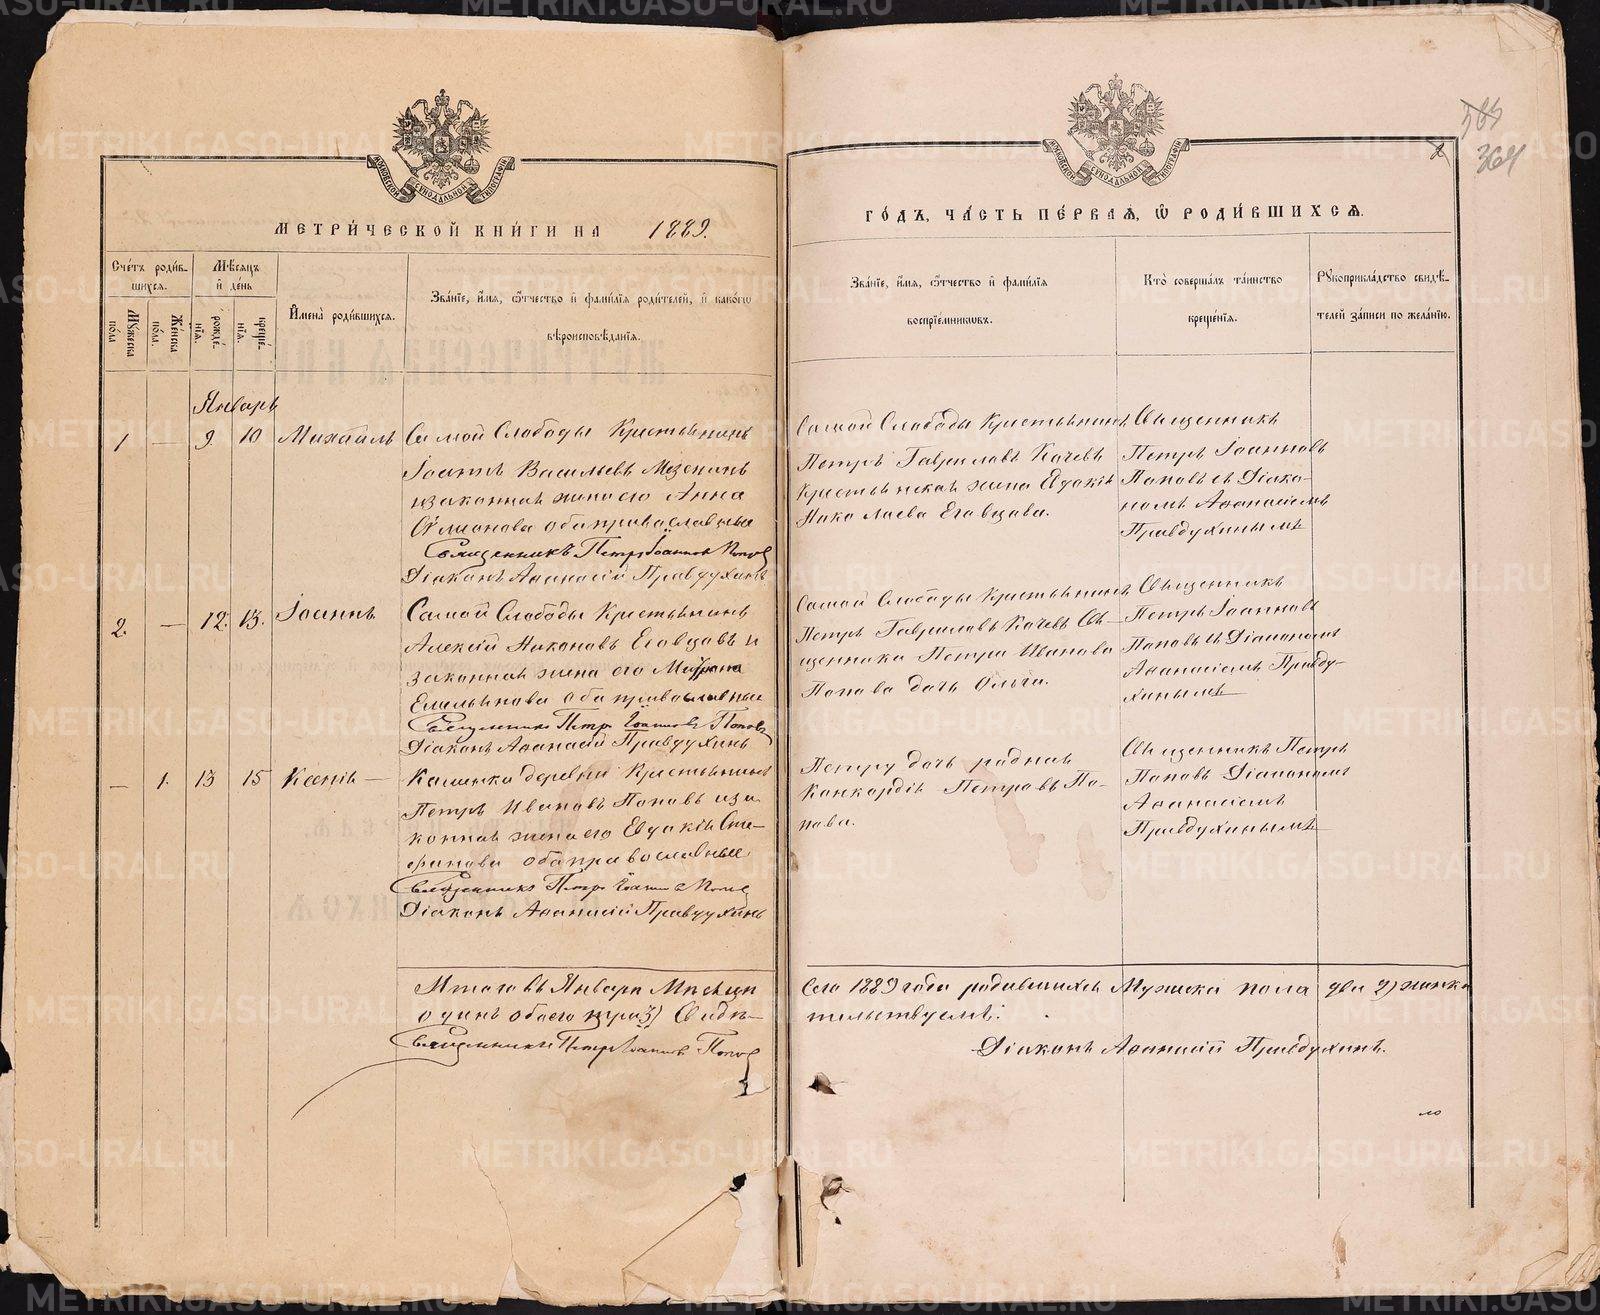 МЕТРИ́ЧЕСКОЙ КНИ́ГИ НА 1889.
Сче́тъ роди́в-
шихся.
Мꙋ́жеска
по́ла
Же́нска
по́ла.
Мѣ́сяцъ
и̑ день
рожде́-
нїя.
креще́-
нїя.
И̑мена̀ роди́вшихся.
Зва́нїе, и̑́мя, ѻ҆́тчество и̑ фами́лїя роди́телей, и̑ како́гѡ
вѣроисповѣ́данїя.
Январь
1 — 9. 10 Михаилъ
Самой Слободы Крестьянинъ
Іоаннъ Васильевъ Мезенинъ
и законная жена его Анна
оба православные
Священникъ Петръ Іоанновъ Поповъ
Діаконъ Аѳанасій Правдухинъ
2. — 12. 13. Іоаннъ
Самой Слободы Крестьянинъ
Алексій Никоновъ Еговцовъ и
законная жена его Матрона
Емельянова оба православные
Священникъ Петръ Іоанновъ Поповъ
Діаконъ Аѳанасій Правдухинъ
— 1. 13 15 Ксенія —
деревни Крестьянинъ
Петръ Ивановъ Поповъ и за
конная жена его Евдокія Сте-
фанова оба православные
Священникъ Петръ Іоанновъ Поповъ
Діаконъ Аѳанасій Правдухинъ
Итого въ Январѣ Мѣсяцѣ
одинъ обоего три 3) Свидѣ-
Священникъ Петръ Іоанновъ Поповъ
МОСКОВСКОЙ СѴНОДАЛЬНОЙ ТИПОГРАФІИ
364
ГО́ДЪ, ЧА́СТЬ ПЕ́РВАЯ, Ѽ РОДИ́ВШИХСЯ.
Зва́нїе, и̑́мя, ѻ҆́тчество и̑ фами́лїя
воспрїе́мниковъ.
Кто̀ соверша́лъ та́инство
креще́нїя.
Рꙋкоприкла́дство свидѣ́-
телей за́писи по жела́нїю.
Самой Слободы Крестьянинъ
Петръ Гавриловъ Качевъ
Крестьянская жена Евдокія
Николаева Еговцова.
Священникъ
Петръ Іоанновъ
Поповъ съ Діако-
номъ Аѳанасіемъ
Правдухинымъ
Самой Слободы Крестьянинъ
Петръ Гавриловъ Качевъ Свя-
щенника Петра Иванова
Попова дочь Ольга.
Священникъ
Петръ Іоанновъ
Поповъ съ Діакономъ
Аѳанасіемъ Правду-
хинымъ
Петру дочь родная
Конкордія Петровъ По-
пова.
Священникъ Петръ
Поповъ Діакономъ
Аѳанасіемъ
Правдухинымъ
Сего 1889 года родившихся Мужска пола два 2) женска
тельствуемъ:
Діаконъ Аѳанасій Правдухинъ.
METRIKI.GASO-URAL.RU